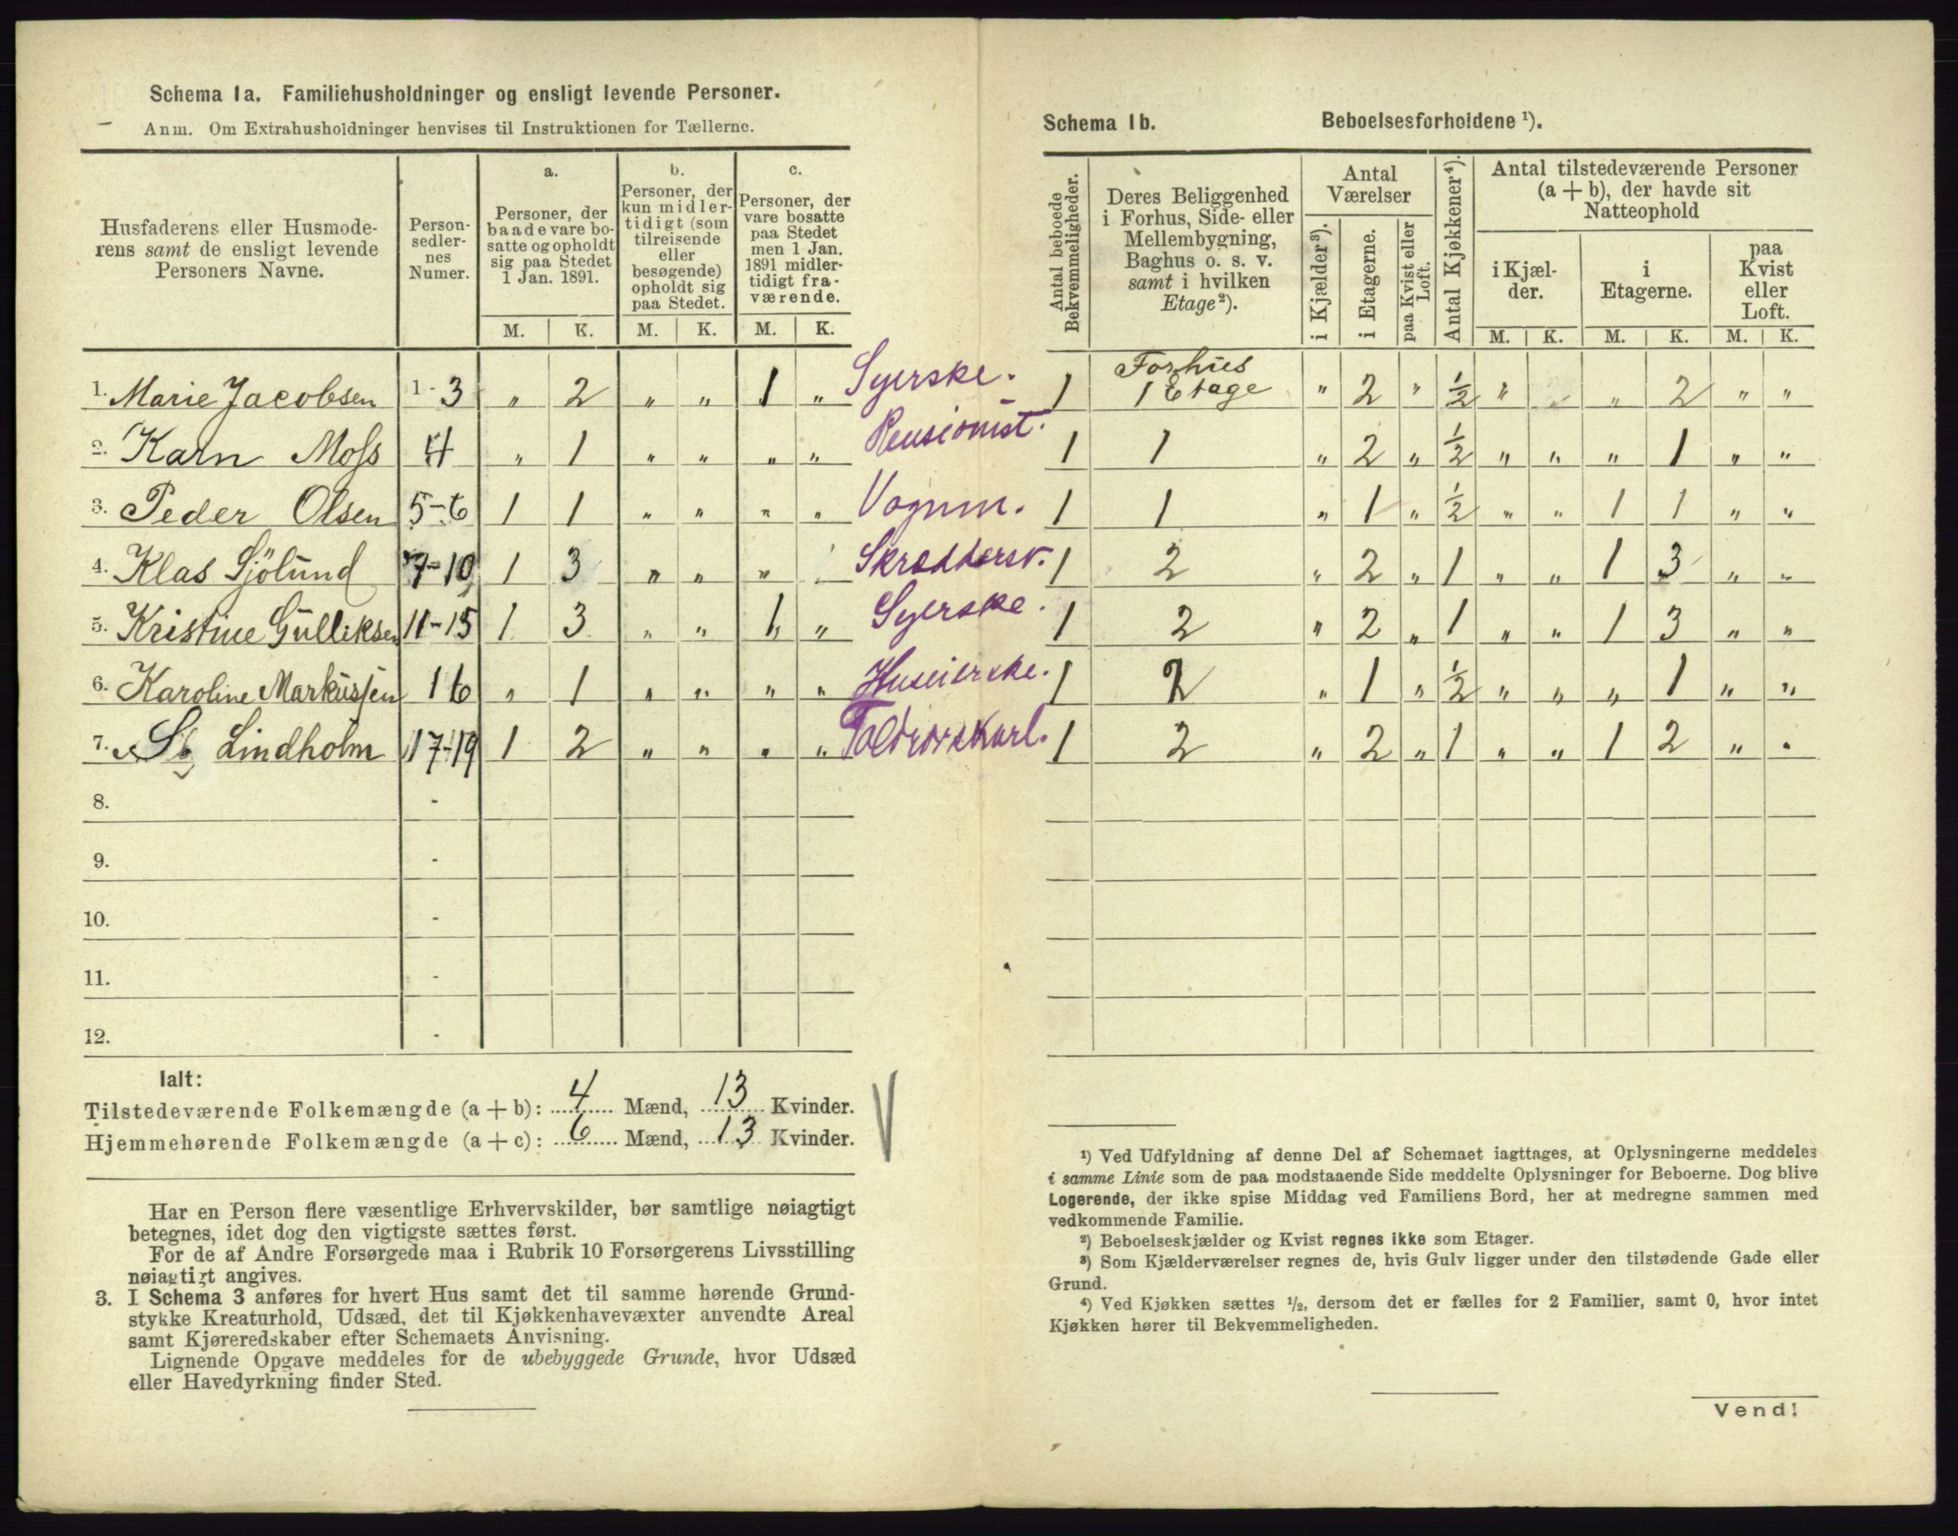 Schema 1a. Familiehusholdninger og ensligt levende Personer.
Anm. Om Extrahusholdninger henvises til Instruktionen for Tællerne.
Husfaderens eller Husmoderens samt de ensligt levende Personers Navne.
Personsedlernes Numer.
a.
Personer, der baade vare bosatte og opholdt sig paa Stedet 1 Jan. 1891.
b.
Personer, der kun midlertidigt (som tilreisende eller besøgende) opholdt sig paa Stedet.
c.
Personer, der vare bosatte paa Stedet men 1 Jan. 1891 midlertidigt fraværende.
M. K. M. K. M. K.
1. Marie Jacobsen 1-3 " 2 " " 1 " Syerske.
2. Karn Moss 4 " 1 " " " " Pensionist.
3. Peder Olsen 5-6 1 1 " " " " Vognm.
4. Klas Sjölund 7-10 1 3 " " " Skreddersv.
5. Kristine Gulliksen 11-15 1 3 " " 1 " Syerske.
6. Karoline Markussen 16 " 1 " " " " Huseierske.
7. Lindholm 17-19 1 2 " " " "
8. -
9. -
10. -
11. -
12. -
Ialt:
Tilstedeværende Folkemængde (a + b): 4 Mænd, 13 Kvinder.
Hjemmehørende Folkemængde (a + c): 6 Mænd, 13 Kvinder.
Har en Person flere væsentlige Erhvervskilder, bør samtlige nøiagtigt
betegnes, idet dog den vigtigste sættes først.
For de af Andre Forsørgede maa i Rubrik 10 Forsørgerens Livsstilling
nøiagtigt angives.
3. I Schema 3 anføres for hvert Hus samt det til samme hørende Grund-
stykke Kreaturhold, Udsæd, det til Kjøkkenhavevæxter anvendte Areal
samt Kjøreredskaber efter Schemaets Anvisning.
Lignende Opgave meddeles for de ubebyggede Grunde, hvor Udsæd
eller Havedyrkning finder Sted.
Schema 1b. Beboelsesforholdene ¹).
Antal beboede Bekvemmeligheder.
Deres Beliggenhed i Forhus, Side- eller Mellembygning, Baghus o. s. v. samt i hvilken Etage²).
Antal Værelser
i Kjælder³).
i Etagerne.
paa Kvist eller Loft.
Antal Kjøkkener⁴).
Antal tilstedeværende Personer (a + b), der havde sit Natteophold
i Kjælder.
i Etagerne.
paa Kvist eller Loft.
M. K. M. K. M. K.
1 Forhus 1 Etage " 2 " ½ " " 2 " "
1 1 " 2 " ½ " " " 1 " "
1 1 " 1 " ½ " " 1 1 " "
1 2 " 2 " 1 " " 1 3 " "
1 2 " 2 " 1 " " 1 3 " "
1 2 " 1 " ½ " " " 1 " "
1 2 " 2 " 1 " " 1 2 " "
¹) Ved Udfyldning af denne Del af Schemaet iagttages, at Oplysningerne meddeles
i samme Linie som de paa modstaaende Side meddelte Oplysninger for Beboerne. Dog blive
Logerende, der ikke spise Middag ved Familiens Bord, her at medregne sammen med
vedkommende Familie.
²) Beboelseskjælder og Kvist regnes ikke som Etager.
³) Som Kjælderværelser regnes de, hvis Gulv ligger under den tilstødende Gade eller
Grund.
⁴) Ved Kjøkken sættes ½, dersom det er fælles for 2 Familier, samt 0, hvor intet
Kjøkken hører til Bekvemmeligheden.
Vend!